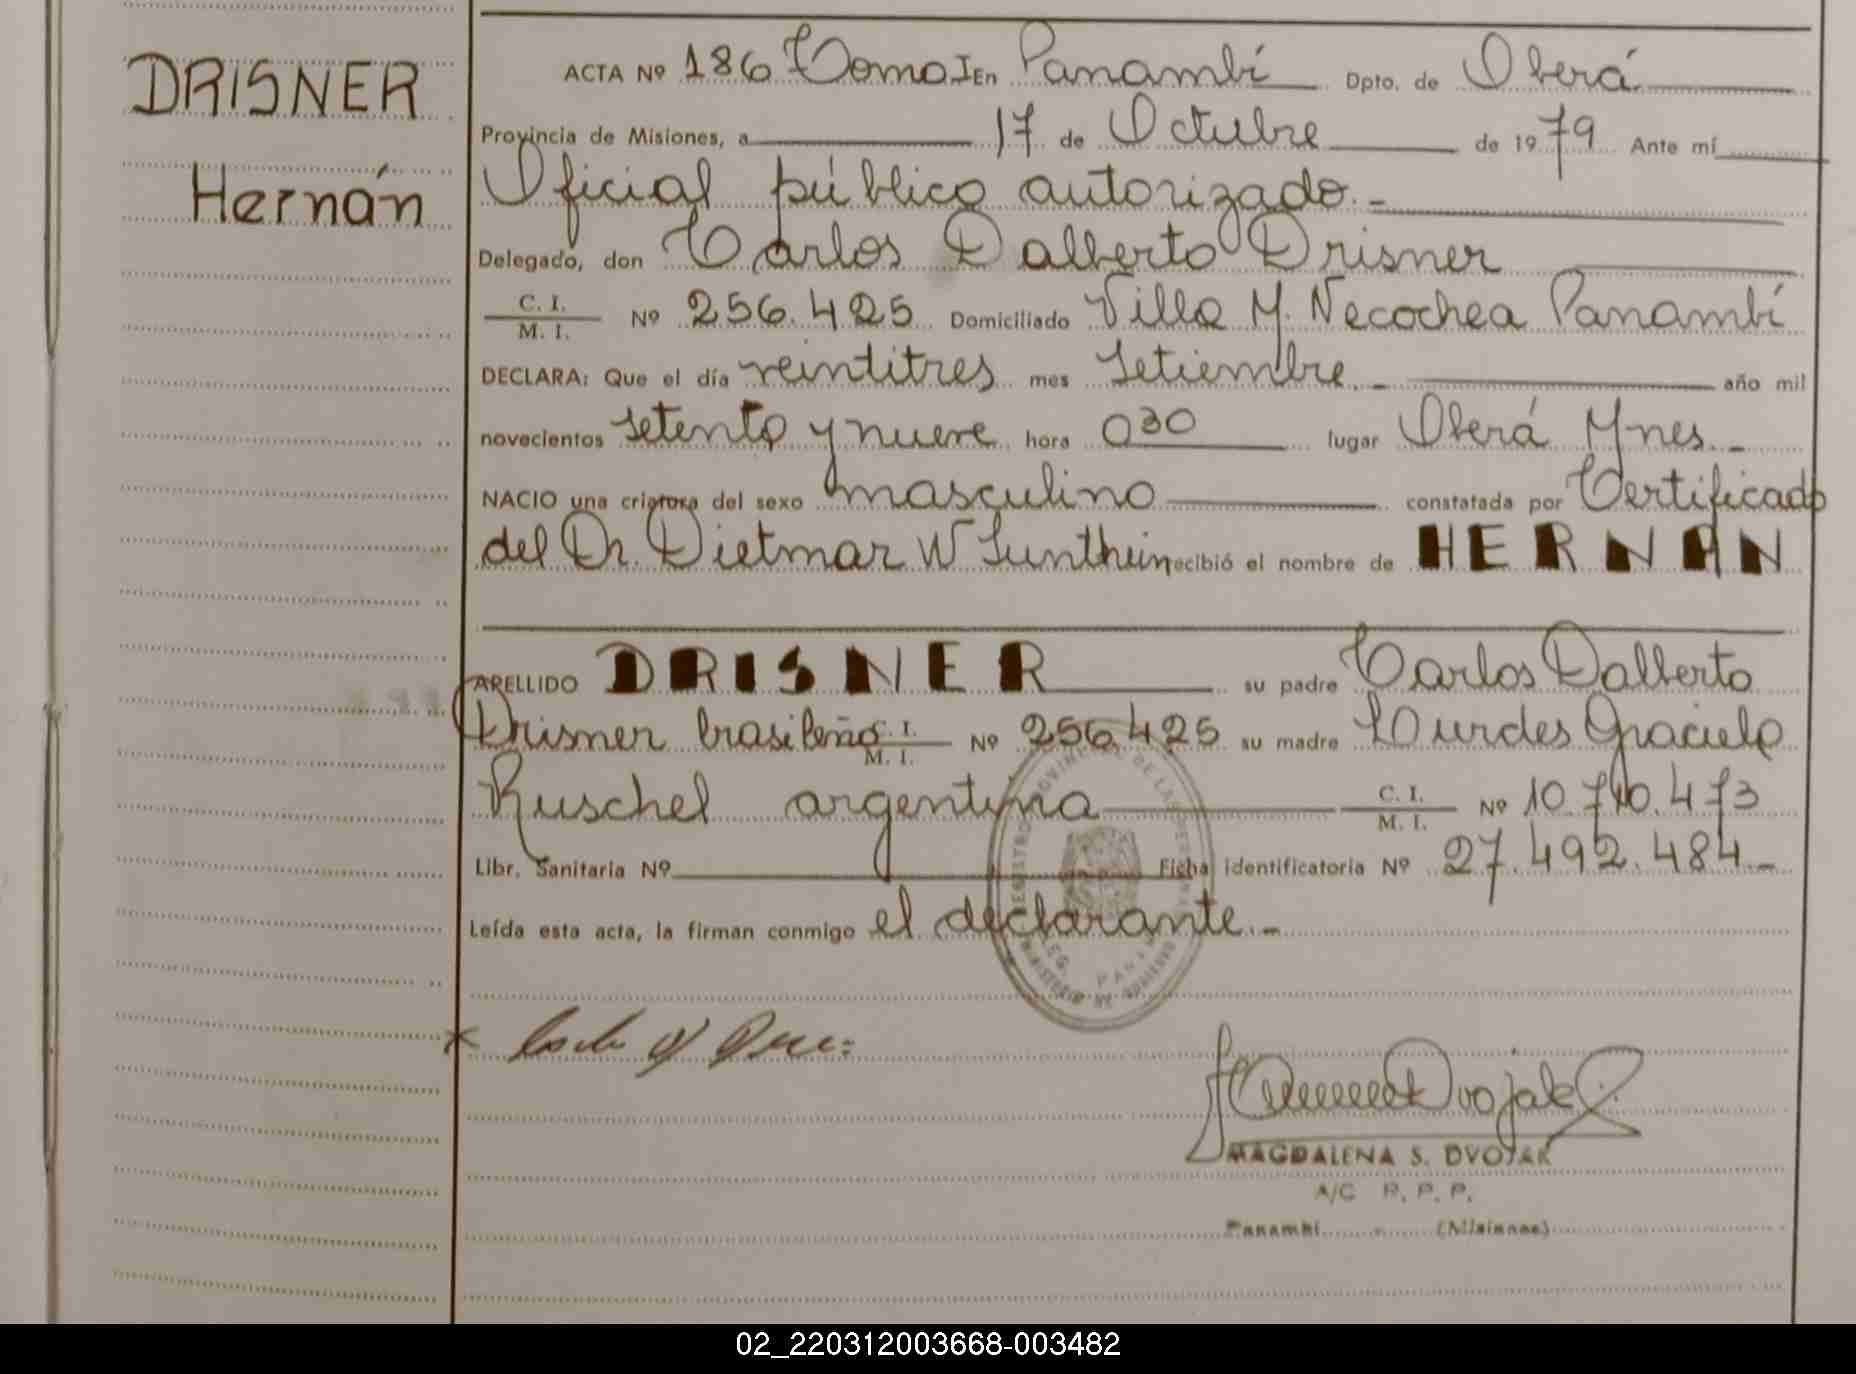 DRISNER
Hernán
ACTA Nº 186 Tomo I En Panambí Dpto. de Oberá
Provincia de Misiones, a 17 de Octubre de 1979 Ante mí
Oficial público autorizado.-
Delegado, don Carlos Dalberto Drisner
C. I.
M. I. Nº 256.425 Domiciliado Villa M. Necochea Panambí
DECLARA: Que el día veintitres mes Setiembre.- año mil
novecientos setenta y nueve hora 030 lugar Oberá Mnes.-
NACIO una criatura del sexo masculino constatada por Certificado
del Dr. Dietmar W Sunthein recibió el nombre de HERNAN
APELLIDO DRISNER su padre Carlos Dalberto
Drisner brasileño C. I.
M. I. Nº 256.425 su madre Lourdes Graciela
Ruschel argentina C. I.
M. I. Nº 10.740.473
Libr. Sanitaria Nº Ficha identificatoria Nº 27.492.484.-
Leída esta acta, la firman conmigo el declarante.-
MAGDALENA S. DVOJAK
A/C R. P. P.
Panambí (Misiones)
02_220312003668-003482